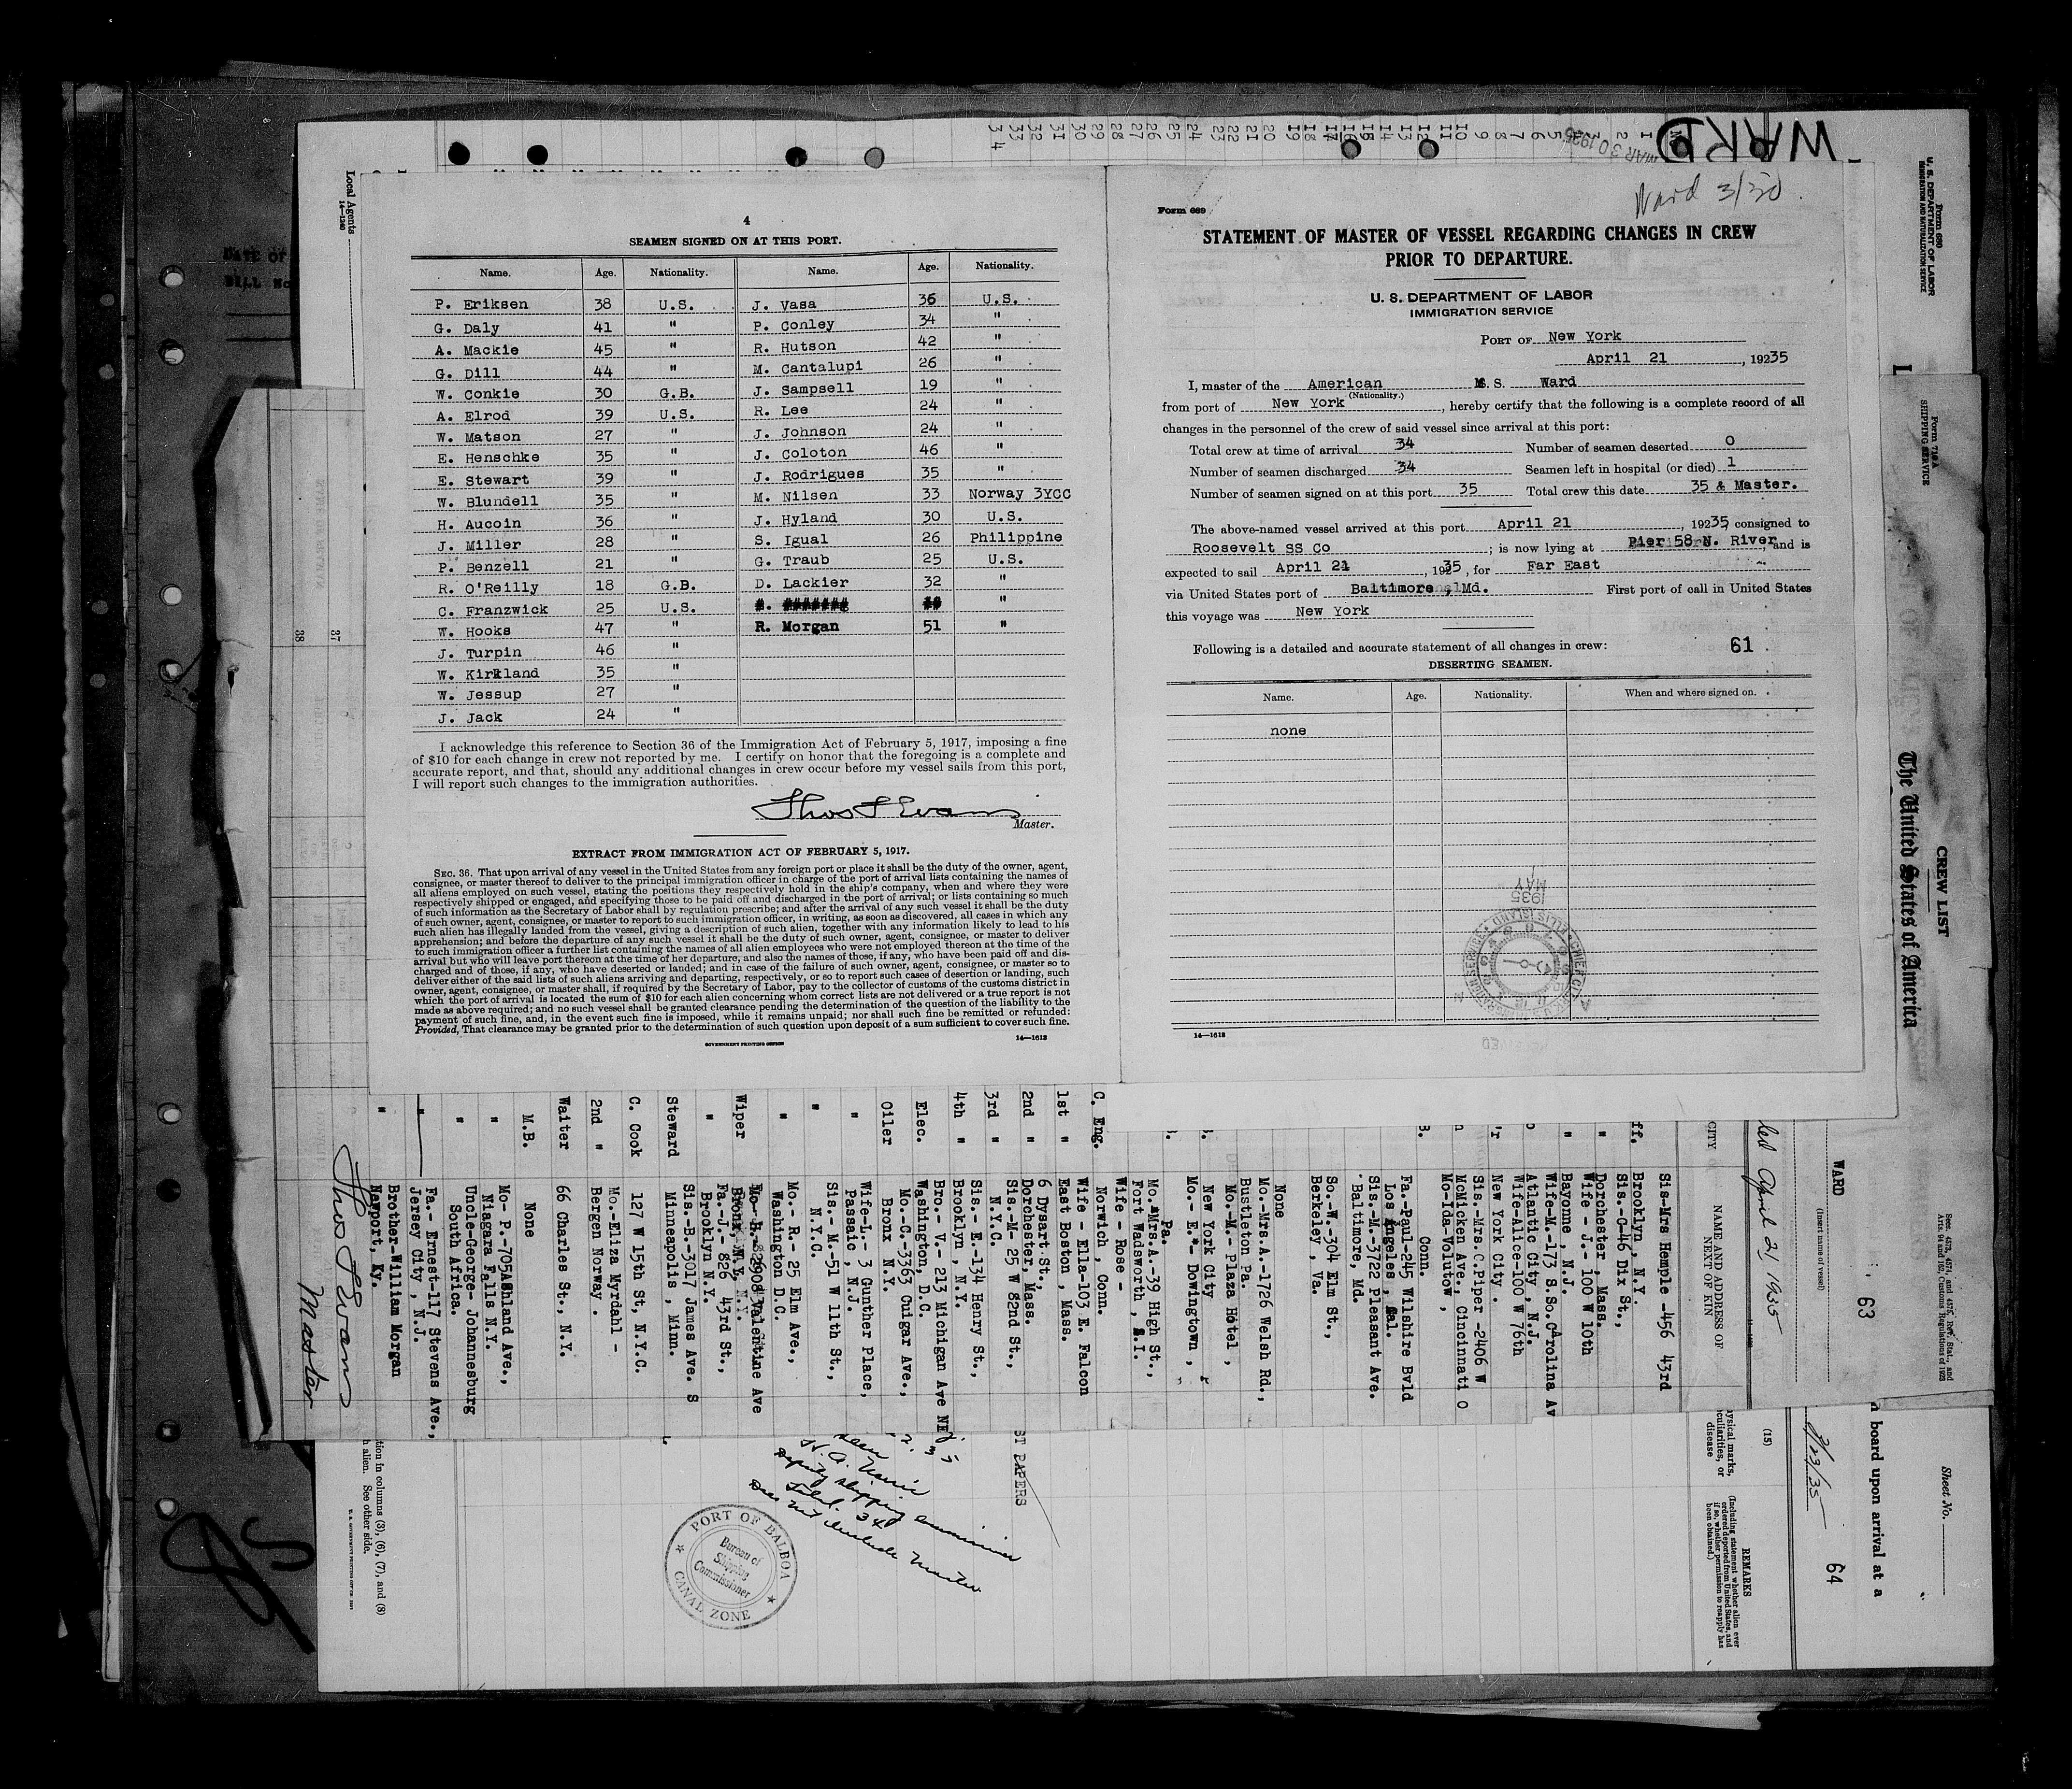 4
SEAMEN SIGNED ON AT THIS PORT.
Name. Age. Nationality. Name. Age. Nationality.
P. Eriksen 38 U.S. J. Vasa 36 U.S.
G. Daly 41 " P. Conley 34 "
A. Mackie 45 " R. Hutson 42 "
G. Dill 44 " M. Cantalupi 26 "
W. Conkie 30 G.B. J. Sampsell 19 "
A. Elrod 39 U.S. R. Lee 24 "
W. Matson 27 " J. Johnson 24 "
E. Henschke 35 " J. Coloton 46 "
E. Stewart 39 " J. Rodrigues 35 "
W. Blundell 35 " M. Nilsen 33 Norway 3YCC
H. Aucoin 36 " J. Hyland 30 U.S.
J. Miller 28 " S. Igual 26 Philippine
P. Benzell 21 " G. Traub 25 U.S.
R. O'Reilly 18 G.B. D. Lackier 32 "
C. Franzwick 25 U.S. #. ####### ## "
W. Hooks 47 " R. Morgan 51 "
J. Turpin 46 "
W. Kirkland 35 "
W. Jessup 27 "
J. Jack 24 "
I acknowledge this reference to Section 36 of the Immigration Act of February 5, 1917, imposing a fine
of $10 for each change in crew not reported by me. I certify on honor that the foregoing is a complete and
accurate report, and that, should any additional changes in crew occur before my vessel sails from this port,
I will report such changes to the immigration authorities.
Thos F Evans
Master.
EXTRACT FROM IMMIGRATION ACT OF FEBRUARY 5, 1917.
SEC. 36. That upon arrival of any vessel in the United States from any foreign port or place it shall be the duty of the owner, agent,
consignee, or master thereof to deliver to the principal immigration officer in charge of the port of arrival lists containing the names of
all aliens employed on such vessel, stating the positions they respectively hold in the ship's company, when and where they were
respectively shipped or engaged, and specifying those to be paid off and discharged in the port of arrival; or lists containing so much
of such information as the Secretary of Labor shall by regulation prescribe; and after the arrival of any such vessel it shall be the duty
of such owner, agent, consignee, or master to report to such immigration officer, in writing, as soon as discovered, all cases in which any
such alien has illegally landed from the vessel, giving a description of such alien, together with any information likely to lead to his
apprehension; and before the departure of any such vessel it shall be the duty of such owner, agent, consignee, or master to deliver
to such immigration officer a further list containing the names of all alien employees who were not employed thereon at the time of the
arrival but who will leave port thereon at the time of her departure, and also the names of those, if any, who have been paid off and dis-
charged and of those, if any, who have deserted or landed; and in case of the failure of such owner, agent, consignee, or master so to
deliver either of the said lists of such aliens arriving and departing, respectively, or so to report such cases of desertion or landing, such
owner, agent, consignee, or master, shall, if required by the Secretary of Labor, pay to the collector of customs of the customs district in
which the port of arrival is located the sum of $10 for each alien concerning whom correct lists are not delivered or a true report is not
made as above required; and no such vessel shall be granted clearance pending the determination of the question of the liability to the
payment of such fine, and, in the event such fine is imposed, while it remains unpaid; nor shall such fine be remitted or refunded:
Provided, That clearance may be granted prior to the determination of such question upon deposit of a sum sufficient to cover such fine.
GOVERNMENT PRINTING OFFICE
14—1613
Ward 3/30
Form 689
STATEMENT OF MASTER OF VESSEL REGARDING CHANGES IN CREW
PRIOR TO DEPARTURE.
U. S. DEPARTMENT OF LABOR
IMMIGRATION SERVICE
PORT OF New York
April 21, 19235
I, master of the American M.S. S. Ward
(Nationality.)
from port of New York, hereby certify that the following is a complete record of all
changes in the personnel of the crew of said vessel since arrival at this port:
Total crew at time of arrival 34 Number of seamen deserted 0
Number of seamen discharged 34 Seamen left in hospital (or died) 1
Number of seamen signed on at this port 35 Total crew this date 35 & Master.
The above-named vessel arrived at this port April 21, 19235 consigned to
Roosevelt SS Co; is now lying at Pier 58 N. River, and is
expected to sail April 21, 19235, for Far East
via United States port of Baltimore, Md. First port of call in United States
this voyage was New York
Following is a detailed and accurate statement of all changes in crew: 61
DESERTING SEAMEN.
Name. Age. Nationality. When and where signed on.
none
1935
MAY
14—1613
WARD
MAR 30 1935
Local Agents
14—1240
37
38
Form 680
U. S. DEPARTMENT OF LABOR
IMMIGRATION AND NATURALIZATION SERVICE
Form 718 A
SHIPPING SERVICE
CREW LIST
The United States of America
WARD
(Insert name of vessel)
63
April 21 1935
NAME AND ADDRESS OF
NEXT OF KIN
Sis-Mrs Hemple -456 43rd
Brooklyn, N.Y.
Sis.-C-46 Dix St.,
Dorchester, Mass.
Wife - J.- 100 W 10th
Bayonne, N.J.
Wife-M.-173 S.So.Carolina Av
Atlantic City, N.J.
Wife-Alice-100 W 76th
New York City.
Sis.-Mrs.C.Piper -2406 W
McMicken Ave., Cincinnati O
Mo-Ida-Volutow,
Conn.
Fa.-Paul-245 Wilshire Bvld
Los Angeles, Cal.
Sis.-M.-3722 Pleasant Ave.
Baltimore, Md.
So.-W.-304 Elm St.,
Berkeley, Va.
None
Mo.-Mrs.A.-1726 Welsh Rd.,
Bustleton Pa.
Mo.-M.- Plaza Hotel,
New York City
Mo.- E.- Dowingtown,
Pa.
Mo.-Mrs.A.-39 High St.,
Fort Wadsworth, S.I.
Wife - Rose -
Norwich, Conn.
C. Eng. Wife - Ella-103 E. Falcon
East Boston, Mass.
1st " 6 Dysart St.,
Dorchester, Mass.
2nd " Sis.-M- 25 W 82nd St.,
N.Y.C.
3rd " Sis.- E.-134 Henry St.,
Brooklyn, N.Y.
4th " Bro.- V.- 213 Michigan Ave NE
Washington, D.C.
Elec. Mo.-C.-3363 Cuigar Ave.,
Bronx N.Y.
Oiler Wife-L.- 3 Gunther Place,
Passaic, N.J.
" Sis.- M.-51 W 11th St.,
N.Y.C.
" Mo.- R.- 25 Elm Ave.,
Washington D.C.
Wiper
" Fa.-J.- 826 43rd St.,
Brooklyn N.Y.
Steward Sis.-B.-3017 James Ave. S
Minneapolis, Minn.
C. Cook 127 W 15th St, N.Y.C.
2nd " Mo.-Eliza Myrdahl -
Bergen Norway.
Waiter 66 Charles St., N.Y.
M.B. None
" Mo- P.-705Ashland Ave.,
Niagara Falls N.Y.
" Uncle-George- Johannesburg
South Africa.
" Fa.- Ernest-117 Stevens Ave.,
Jersey City, N.J.
" Brother-William Morgan
Newport, Ky.
Thos F Evans
Master
Sheet No.
n board upon arrival at a
3/23/35
64
(15)
REMARKS
(Including statement whether alien ever
ordered deported from United States, and
if so, whether permission to reapply has
been obtained.)
ST PAPERS
Deputy shipping commissioner
34
Does not include Master
PORT OF BALBOA
Bureau of
Shipping
Commissioner
CANAL ZONE
tion in columns (3), (6), (7), and (8)
h alien. See other side.